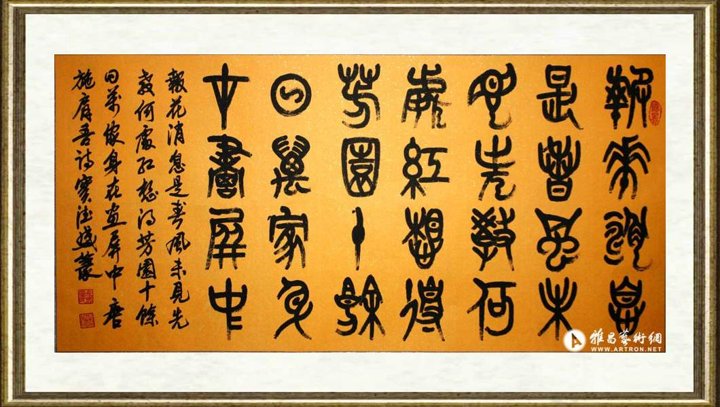 報花消息
是春風未
見先教何
處紅想得
芳園十餘
日萬家身
在畫屏中
報花消息是春風未見先
教何處紅想得芳園十餘
日萬家身在畫屏中 唐
施肩吾詩
雅昌藝術網
WWW.ARTRON.NET